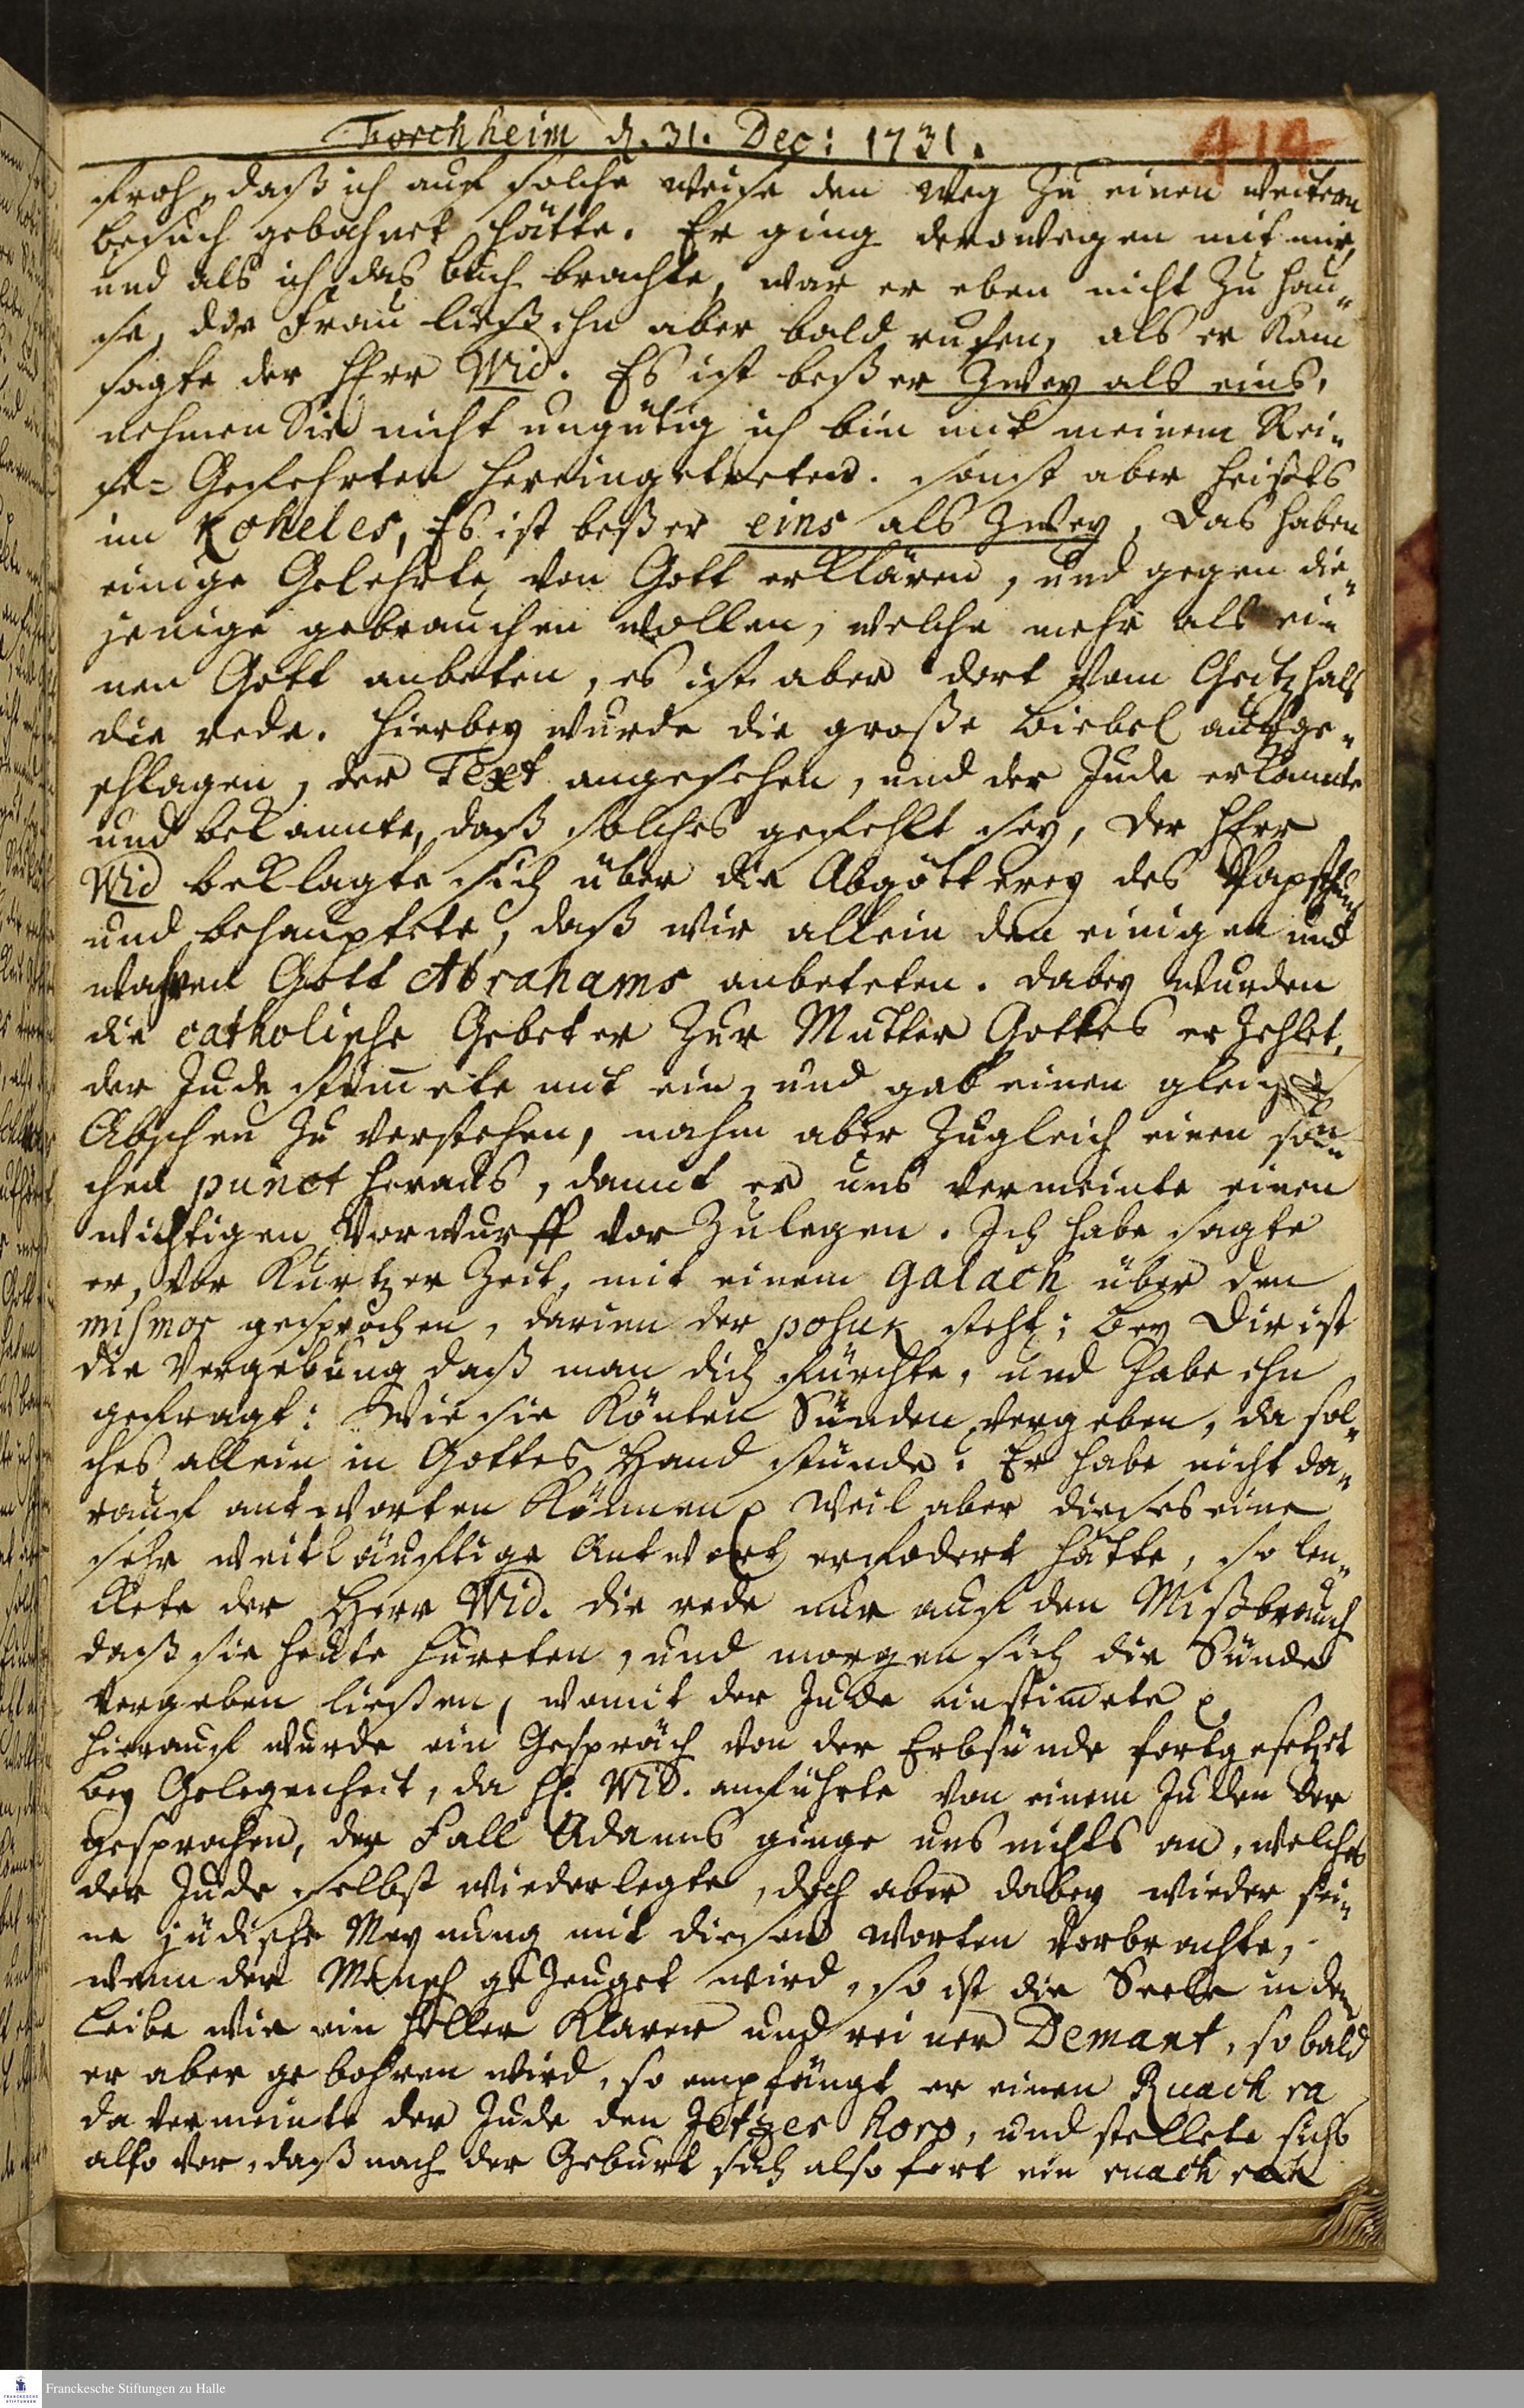 Forchheim d. 31. Dec: 1731.
414
froh, daß ich auf solche weise den weg zu einen weitern
besuch gebahnet hätte. Er ging derowegen mit mir,
und als ich das buch brachte, war er eben nicht zu hau„
se, die Frau ließ ihn aber bald rufen, als er kam
sagte der Herr Wid. Es ist beßer zwey als eins,
nehmen Sie nicht ungütig ich bin mit meinem Rei„
se= Gefehrten hereingetreten. sonst aber heists
im Koheles, Es ist beßer eins als zwey, das haben
einige Gelehrte von Gott erklären, und gegen die„
jenige gebrauchen wollen, welche mehr als ei„
nen Gott anbeten, es ist aber dort vom Geitzhals
die rede. hierbey wurde die große Biebel aufge„
schlagen, der Text angesehen, und der Jude erkannte
und bekannte, daß solches gefehlt sey, der Herr
Wid beklagte sich über die Abgötterey des Papsthums
und behauptete, daß wir allein den einigen und
wahren Gott Abrahams anbeteten. dabey wurden
die catholische Gebeter zur Mutter Gottes erzehlet,
der Jude stim̄ete mit ein, und gab einen gleichen
Abscheu zu verstehen, nahm aber zugleich einen sol„
chen punct heraus, damit er uns vermeinte einen
wichtigen Vorwurff vor zulegen. Ich habe sagte
er, vor kurtzer Zeit, mit einem galach über den
mismor gesprochen, darinn der posuk steht; bey Dir ist
die Vergebung daß man dich fürchte, und habe ihn
gefragt: Wie sie könten Sünden vergeben, da sol„
ches allein in Gottes Hand stünde: Er habe nicht da„
rauf antworten können weil aber dieses eine
sehr weitläuftige Antwort erfodert hätte, so len„
kete der Herr Wid. die rede nur auf den Mißbrauch
daß sie heute hureten, und morgen sich die Sünde
vergeben ließen, womit der Jude einstim̄ete
hierauf wurde ein Gespräch von der Erbsünde fortgesetzet
bey Gelegenheit, da H. Wid. anführte von einem Juden der
gesprochen, der Fall Adams ginge uns nichts an, welches
der Jude selbst wiederlegte, doch aber dabey wieder sei„
ne jüdische Meynung mit diesen worten vorbrachte,
wenn der Mensch gezeuget wird, so ist die Seele in dem
Leibe wie ein heller klarer und reiner Demant, so bald
er aber gebohren wird, so empfängt er einen Ruach ra
da vermeinte der Jude den Jetzer hora, und stellete sichs
also vor, daß nach der Geburt sich also fort ein ruach rah
Franckesche Stiftungen zu Halle